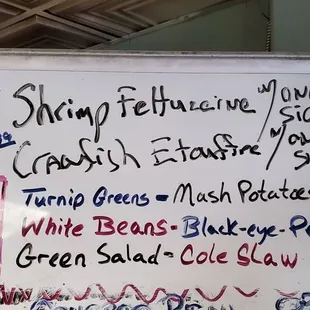 Shrimp Fettuzcine w/ one
Crawfish Etouffee w/
Turnip Greens - Mash Potatoe
White Beans - Black-eye-Pe
Green Salad - Cole Slaw